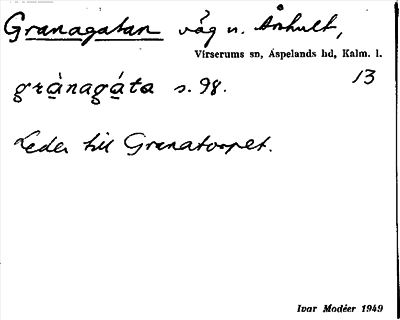 Granagatan väg n. Århult,
Virserums sn, Aspelands hd, Kalm. l.
13
grànagáta s. 98.
Leder till Granatorpet.
Ivar Modéer 1949